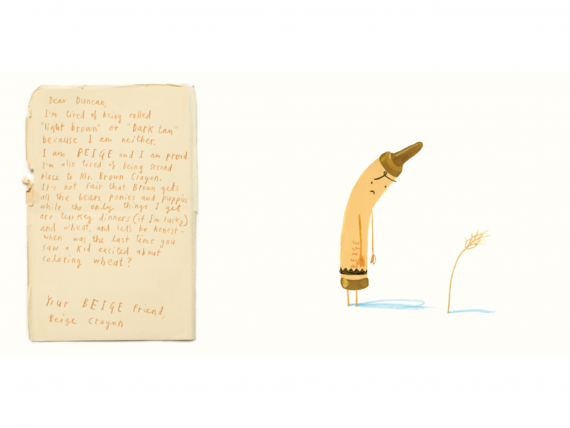 Dear Duncan,
I'm tired of being called
"light brown" or "DARK tan"
because I am neither.
I am BEIGE and I am proud.
I'm also tired of being second
place to Mr. Brown Crayon.
It's not fair that Brown gets
all the bears, ponies and puppies
while the only things I get
are turkey dinners (if I'm lucky)
and wheat, and let's be honest-
when was the last time you
saw a kid excited about
coloring wheat?
Your BEIGE friend,
Beige Crayon
BEIGE